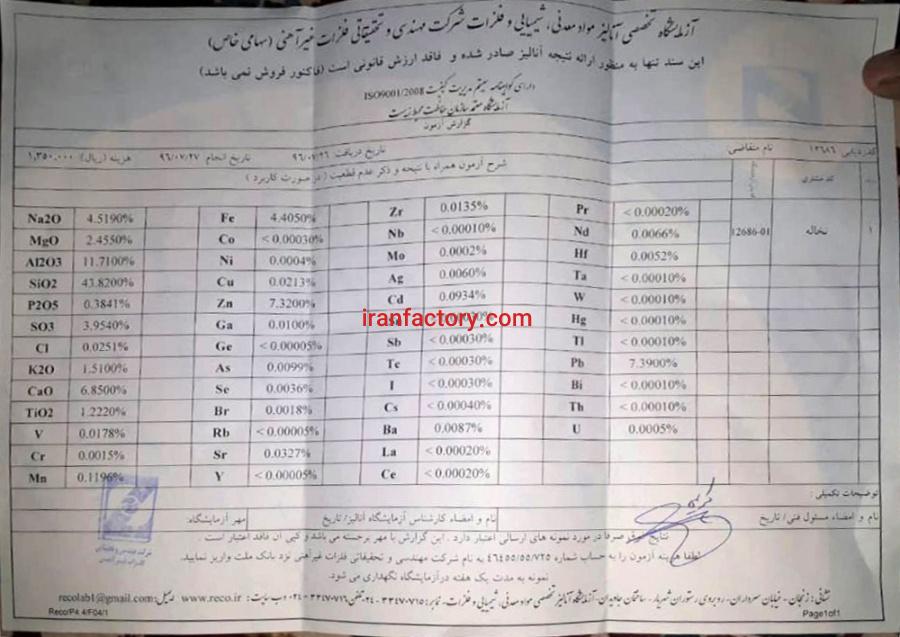 آزمایشگاه تخصصی آنالیز مواد معدنی، شیمیایی و فلزات شرکت مهندسی و تحقیقاتی فلزات غیرآهنی (سهامی خاص)
این سند تنها به منظور ارائه نتیجه آنالیز صادر شده و فاقد ارزش قانونی است (فاکتور فروش نمی باشد)
دارای گواهینامه سیستم مدیریت کیفیت ISO9001/2008
آزمایشگاه معتمد سازمان حفاظت محیط زیست
گزارش آزمون
کد ردیابی ۱۲۶۸۶ نام متقاضی تاریخ دریافت ۹۶/۰۷/۲۶ تاریخ انجام ۹۶/۰۷/۲۷ هزینه (ریال) ۱,۳۵۰,۰۰۰
کد مشتری شرح آزمون همراه با نتیجه و ذکر عدم قطعیت (در صورت کاربرد)
۱ نخاله 12686-01
Na2O 4.5190% Fe 4.4050% Zr 0.0135% Pr < 0.00020%
MgO 2.4550% Co < 0.00030% Nb < 0.00010% Nd 0.0066%
Al2O3 11.7100% Ni 0.0004% Mo 0.0002% Hf 0.0052%
SiO2 43.8200% Cu 0.0213% Ag 0.0060% Ta < 0.00010%
P2O5 0.3841% Zn 7.3200% Cd 0.0934% W < 0.00010%
SO3 3.9540% Ga 0.0100% Hg < 0.00010%
iranfactory.com
Cl 0.0251% Ge < 0.00005% Sb < 0.00030% Tl < 0.00010%
K2O 1.5100% As 0.0099% Te < 0.00030% Pb 7.3900%
CaO 6.8500% Se 0.0036% I < 0.00030% Bi < 0.00010%
TiO2 1.2220% Br 0.0018% Cs < 0.00040% Th < 0.00010%
V 0.0178% Rb < 0.00005% Ba 0.0087% U 0.0005%
Cr 0.0015% Sr 0.0327% La < 0.00020%
Mn 0.1196% Y < 0.00005% Ce < 0.00020%
توضیحات تکمیلی:
نام و امضاء مسئول فنی / تاریخ نام و امضاء کارشناس آزمایشگاه آنالیز/ تاریخ مهر آزمایشگاه:
نتایج فوق صرفا در مورد نمونه های ارسالی اعتبار دارد . این گزارش با مهر برجسته می باشد و کپی آن فاقد اعتبار است .
لطفا هزینه آزمون را به حساب شماره به نام شرکت مهندسی و تحقیقاتی فلزات غیرآهنی نزد بانک ملت واریز نمایید.
نمونه به مدت یک هفته در آزمایشگاه نگهداری می شود.
نشانی: زنجان - خیابان سرداران - روبروی رستوران شهریار - ساختمان - آزمایشگاه آنالیز تخصصی مواد معدنی، شیمیایی و فلزات - نمابر: تلفن وب سایت: www.reco.ir ایمیل: recolab1@gmail.com
Reco/P4 4/F04/1 Page1of1